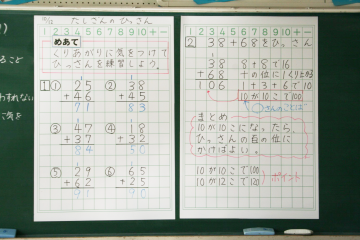 たしざんのひっさん
1 2 3 4 5 6 7 8 9 10 + −
めあて
くりあがりに気をつけて
ひっさんを練習しよう。
1 ① 25
+46
71
② 38
+45
83
③ 47
+37
84
④ 18
+32
50
⑤ 29
+62
91
⑥ 65
+25
90
1 2 3 4 5 6 7 8 9 10 + −
2 38+68をひっさん
38
+68
106
8+8で16
十の位に1くり上がる
1+3+6で10
10が10こで100
まとめ
10が10こになったら、
ひっさんの百の位に
かけばよい。
10が10こで100
10が12こで120
ポイント
ること
わすれない
に気を